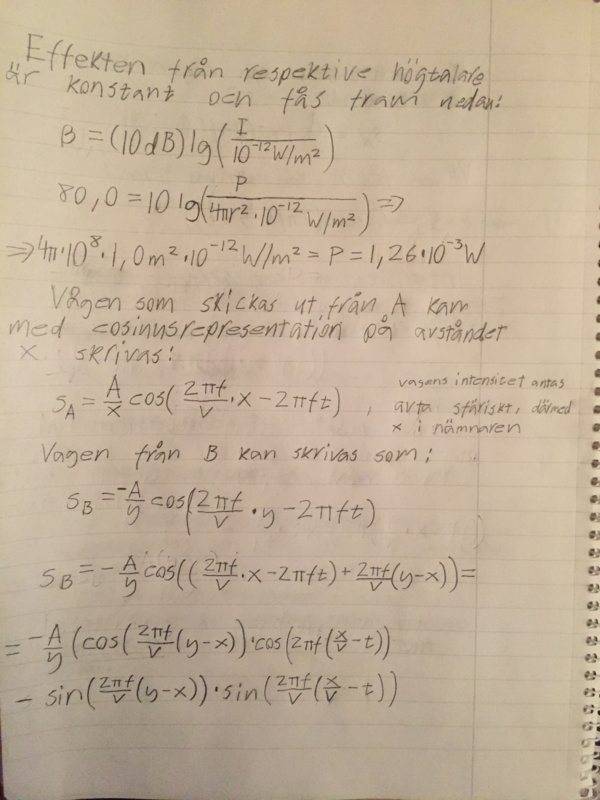 Effekten från respektive högtalare
är konstant och fås fram nedan:
B = (10dB) lg(I/10⁻¹²W/m²)
80,0 = 10 lg(P/4πr²·10⁻¹² W/m²) =>
=> 4π·10⁸·1,0m²·10⁻¹²W/m² = P = 1,26·10⁻³W
Vågen som skickas ut från A kan
med cosinusrepresentation på avståndet
x skrivas:
s_A = A/x cos(2πf/v · x − 2πft) , vågens intensitet antas
avta sfäriskt, därmed
x i nämnaren
Vågen från B kan skrivas som:
s_B = −A/y cos(2πf/v · y − 2πft)
s_B = −A/y cos((2πf/v · x − 2πft) + 2πf/v (y−x)) =
= −A/y (cos(2πf/v (y−x)) · cos(2πf(x/v − t))
− sin(2πf/v (y−x)) · sin(2πf/v (x/v − t))